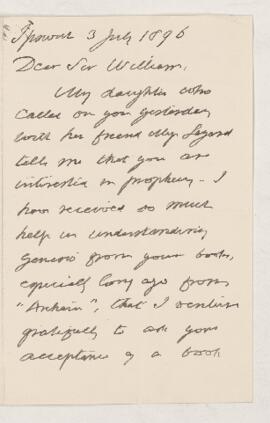 3 July 1896
Dear Sir William,
My daughter who
called on you yesterday
with her friend
tells me that you are
interested in prophecy. I
have received so much
help in understanding
Genesis from your books,
especially long ago from
"Archaia", that I venture
gratefully to ask your
acceptance of a book